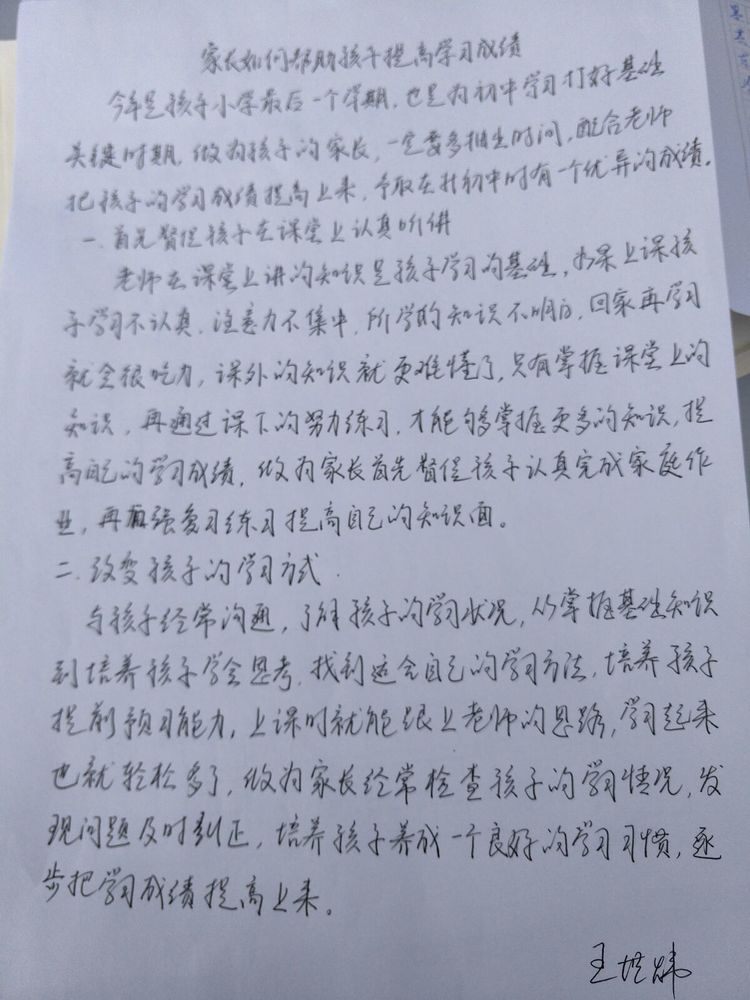 家长如何帮助孩子提高学习成绩
今年是孩子小学最后一个学期，也是为初中学习打好基础
关键时期，做为孩子的家长，一定要多抽出时间，配合老师
把孩子的学习成绩提高上来，争取在升初中时有一个优异的成绩。
一、首先督促孩子在课堂上认真听讲
老师在课堂上讲的知识是孩子学习的基础，如果上课孩
子学习不认真，注意力不集中，所学的知识不明白，回家再学习
就会很吃力，课外的知识就更难懂了，只有掌握课堂上的
知识，再通过课下的努力练习，才能够多掌握更多的知识，提
高自己的学习成绩，做为家长首先督促孩子认真完成家庭作
业，再加强复习练习提高自己的知识面。
二、改变孩子的学习方式.
与孩子经常沟通，了解孩子的学习状况，从掌握基础知识
到培养孩子学会思考，找到适合自己的学习方法，培养孩子
提前预习能力，上课时就能跟上老师的思路，学习起来
也就轻松多了，做为家长经常检查孩子的学习情况，发
现问题及时纠正，培养孩子养成一个良好的学习习惯，逐
步把学习成绩提高上来。
王